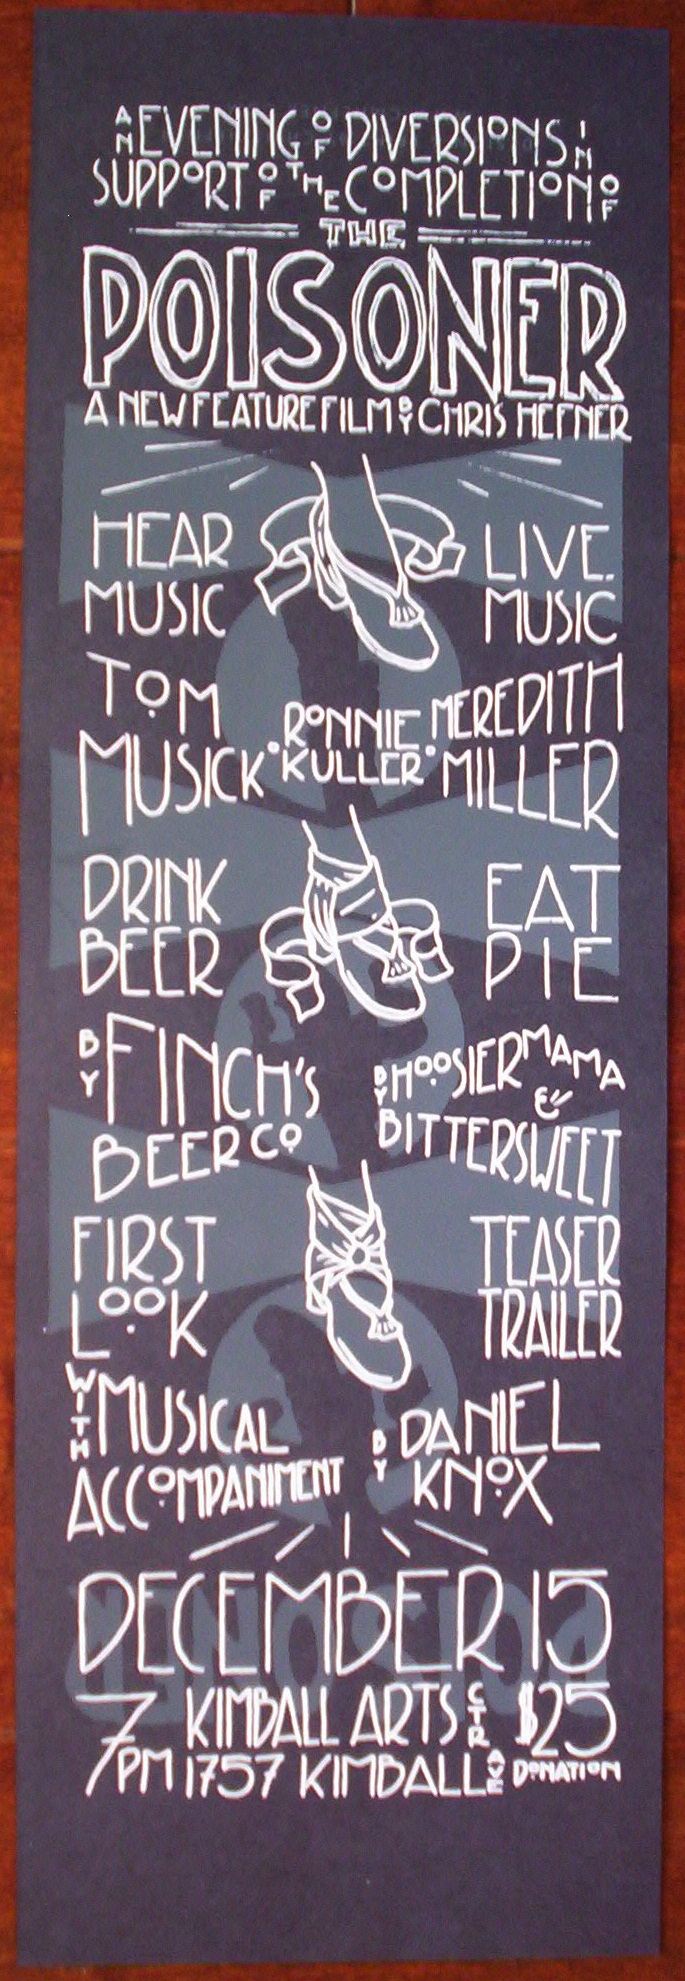 AN EVENING OF DIVERSIONS IN
SUPPORT OF THE COMPLETION OF
THE
POISONER
A NEW FEATURE FILM BY CHRIS HEFNER
HEAR MUSIC
LIVE. MUSIC
TOM MUSICK · RONNIE KULLER · MEREDITH MILLER
DRINK BEER
EAT PIE
BY FINCH'S BEER CO
BY HOOSIER MAMA & BITTERSWEET
FIRST LOOK
TEASER TRAILER
WITH MUSICAL ACCOMPANIMENT BY DANIEL KNOX
DECEMBER 15
POISONER
7 KIMBALL ARTS CTR $25
PM 1757 KIMBALL AVE DONATION